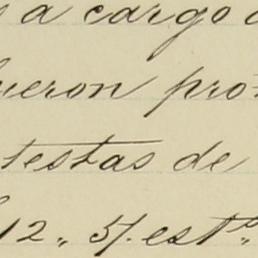 a cargo
ueron pro
testas de
12., 5/. est.º,